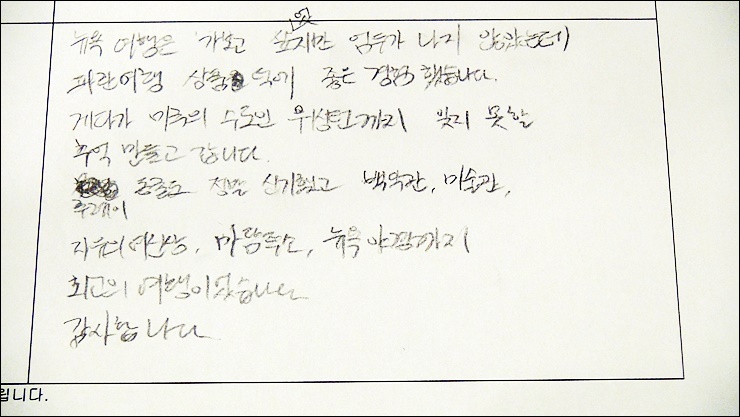 뉴욕 여행은 가보고 싶었지만 엄두가 나지 않았는데
파란여행 상품 덕에 좋은 경험 했습니다.
게다가 미국의 수도인 워싱턴까지 잊지 못할
추억 만들고 갑니다.
루레이 동굴도 정말 신기했고 백악관, 미술관,
자유의여신상, 마담투소, 뉴욕야경까지
최고의 여행이었습니다
감사합니다
립니다.